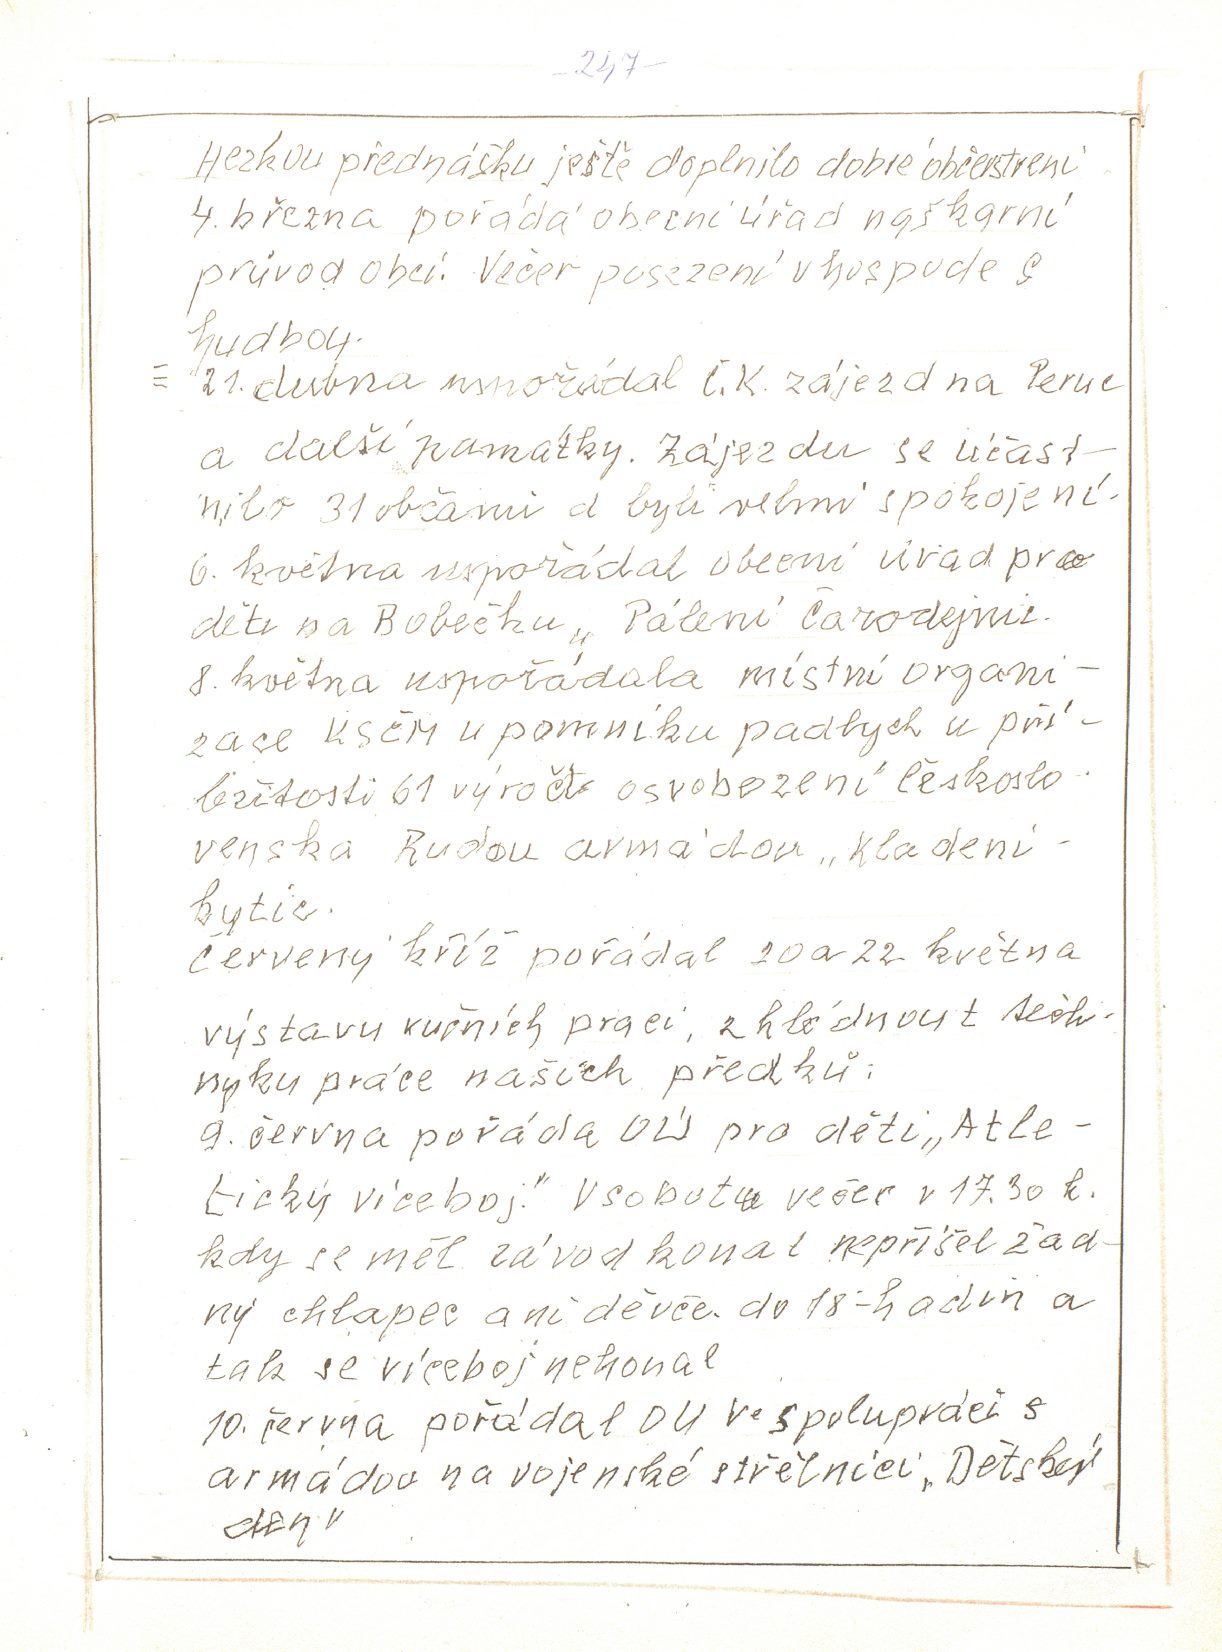 -247-
Hezkou přednášku ještě doplnilo dobré občerstvení
4. března pořádá obecní úřad naškarní
průvod obcí. Večer posezení v hospodě s
hudbou.
= 21. dubna uspořádal Č.K. zájezd na Peruc
a další památky. Zájezdu se účast-
nilo 31 občanů a byli velmi spokojení.
6. května uspořádal obecní úřad pro
děti na Bobečku „Pálení Čarodejnic.
8. května uspořádala místní organi-
zace KSČM u pomníku padlych u pří-
ležitosti 61 výročí osvobození českoslo-
venska Rudou armádou „Kladení-
kytic.
Červený kříž pořádal 20 a 22 května
výstavu ručních prací, zhlédnout tech-
nyku práce našich předků.
9. června pořádá OÚ pro děti „Atle-
tický víceboj." V sobotu večer v 17.30 h.
kdy se měl závod konat nepříšel žad-
ný chlapec ani děvče. do 18-hodin a
tak se víceboj nekonal
10. června pořádal OU ve spolupráci s
armádou na vojenské střělnici „Dětský
den"